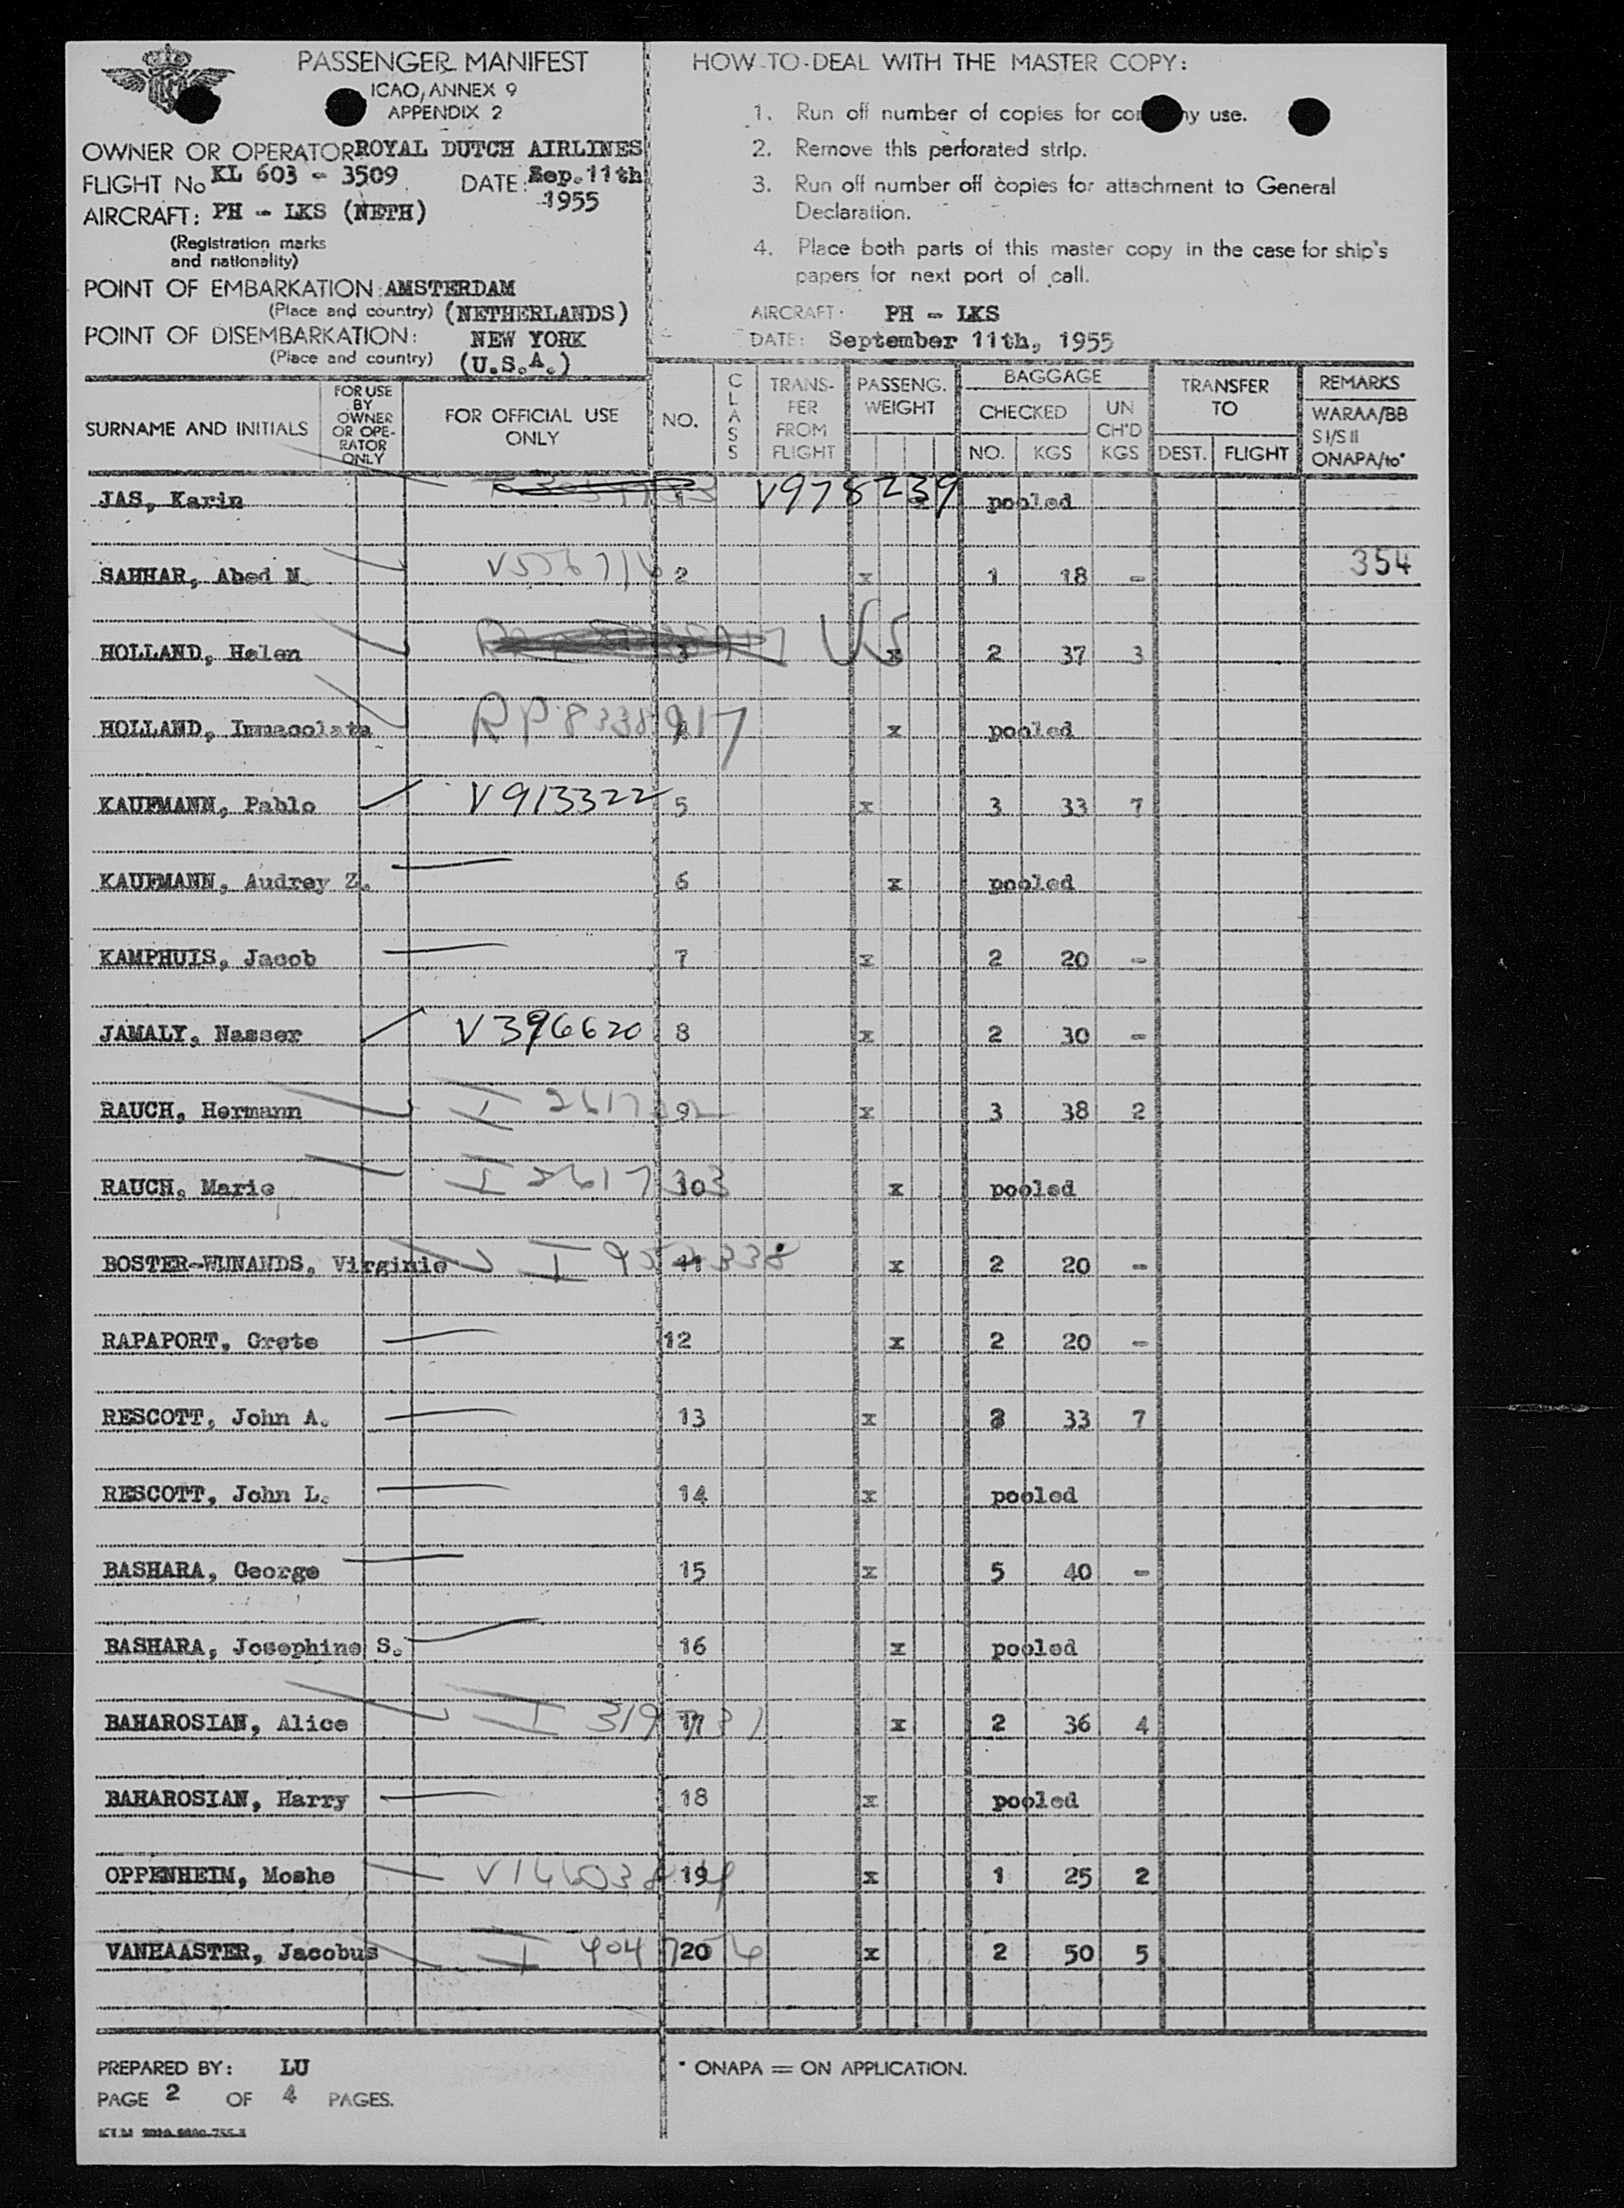 PASSENGER MANIFEST
ICAO, ANNEX 9
APPENDIX 2
OWNER OR OPERATOR ROYAL DUTCH AIRLINES
FLIGHT No KL 603 - 3509 DATE: Sep. 11th
1955
AIRCRAFT: PH - LKS (NETH)
(Registration marks
and nationality)
POINT OF EMBARKATION: AMSTERDAM
(Place and country) (NETHERLANDS)
POINT OF DISEMBARKATION: NEW YORK
(Place and country) (U.S.A.)
HOW TO DEAL WITH THE MASTER COPY:
1. Run off number of copies for use.
2. Remove this perforated strip.
3. Run off number off copies for attachment to General
Declaration.
4. Place both parts of this master copy in the case for ship's
papers for next port of call.
AIRCRAFT: PH - LKS
DATE: September 11th, 1955
SURNAME AND INITIALS
FOR USE
BY
OWNER
OR OPE-
RATOR
ONLY
FOR OFFICIAL USE
ONLY
NO.
CLASS
TRANS-
FER
FROM
FLIGHT
PASSENG.
WEIGHT
BAGGAGE
CHECKED
NO. KGS
UN
CH'D
KGS
TRANSFER
TO
DEST. FLIGHT
REMARKS
WARAA/BB
SI/SII
ONAPA/to*
JAS, Karin V978239 pooled
SAHHAR, Abed M. 2 x 1 18 - 354
HOLLAND, Helen 3 US x 2 37 3
HOLLAND, Immacolata RP8338917 x pooled
KAUFMANN, Pablo V913322 5 x 3 33 7
KAUFMANN, Audrey Z. 6 x pooled
KAMPHUIS, Jacob 7 x 2 20 -
JAMALY, Nasser V396620 8 x 2 30 -
RAUCH, Hermann 9 x 3 38 2
RAUCH, Marie 10 x pooled
BOSTER-WIJNANDS, Virginie 11 x 2 20 -
RAPAPORT, Grete 12 x 2 20 -
RESCOTT, John A. 13 x 3 33 7
RESCOTT, John L. 14 x pooled
BASHARA, George 15 x 5 40 -
BASHARA, Josephine S. 16 x pooled
BAHAROSIAN, Alice 17 x 2 36 4
BAHAROSIAN, Harry 18 x pooled
OPPENHEIM, Moshe 19 x 1 25 2
VANHAASTER, Jacobus 20 x 2 50 5
PREPARED BY: LU
PAGE 2 OF 4 PAGES.
* ONAPA = ON APPLICATION.